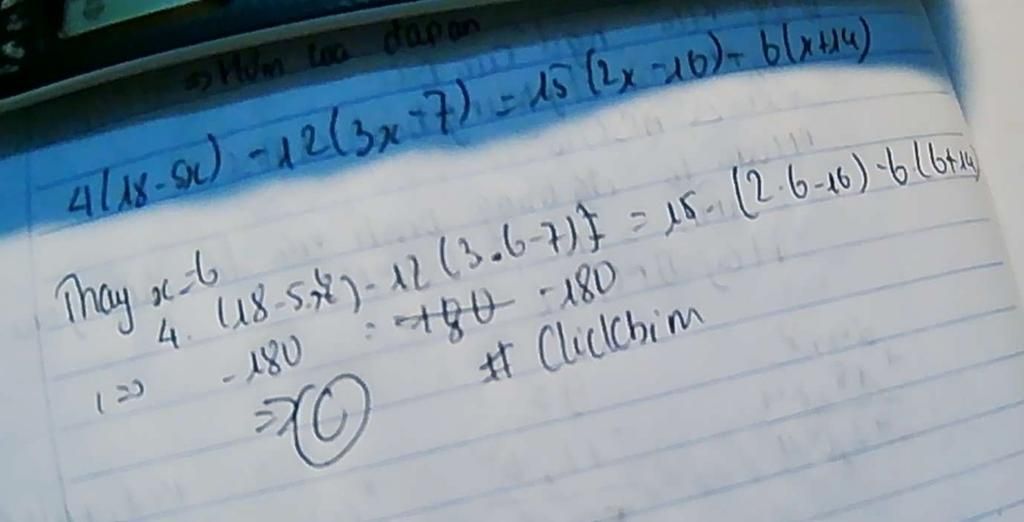 4(18-5x) - 12(3x-7) = 15(2x-16) - 6(x+14)
Thay x=6
4. (18-5.6) - 12(3.6-7) = 15. (2.6-16) - 6(6+14)
=> -180 = -180 -180
=> C # Clickbim